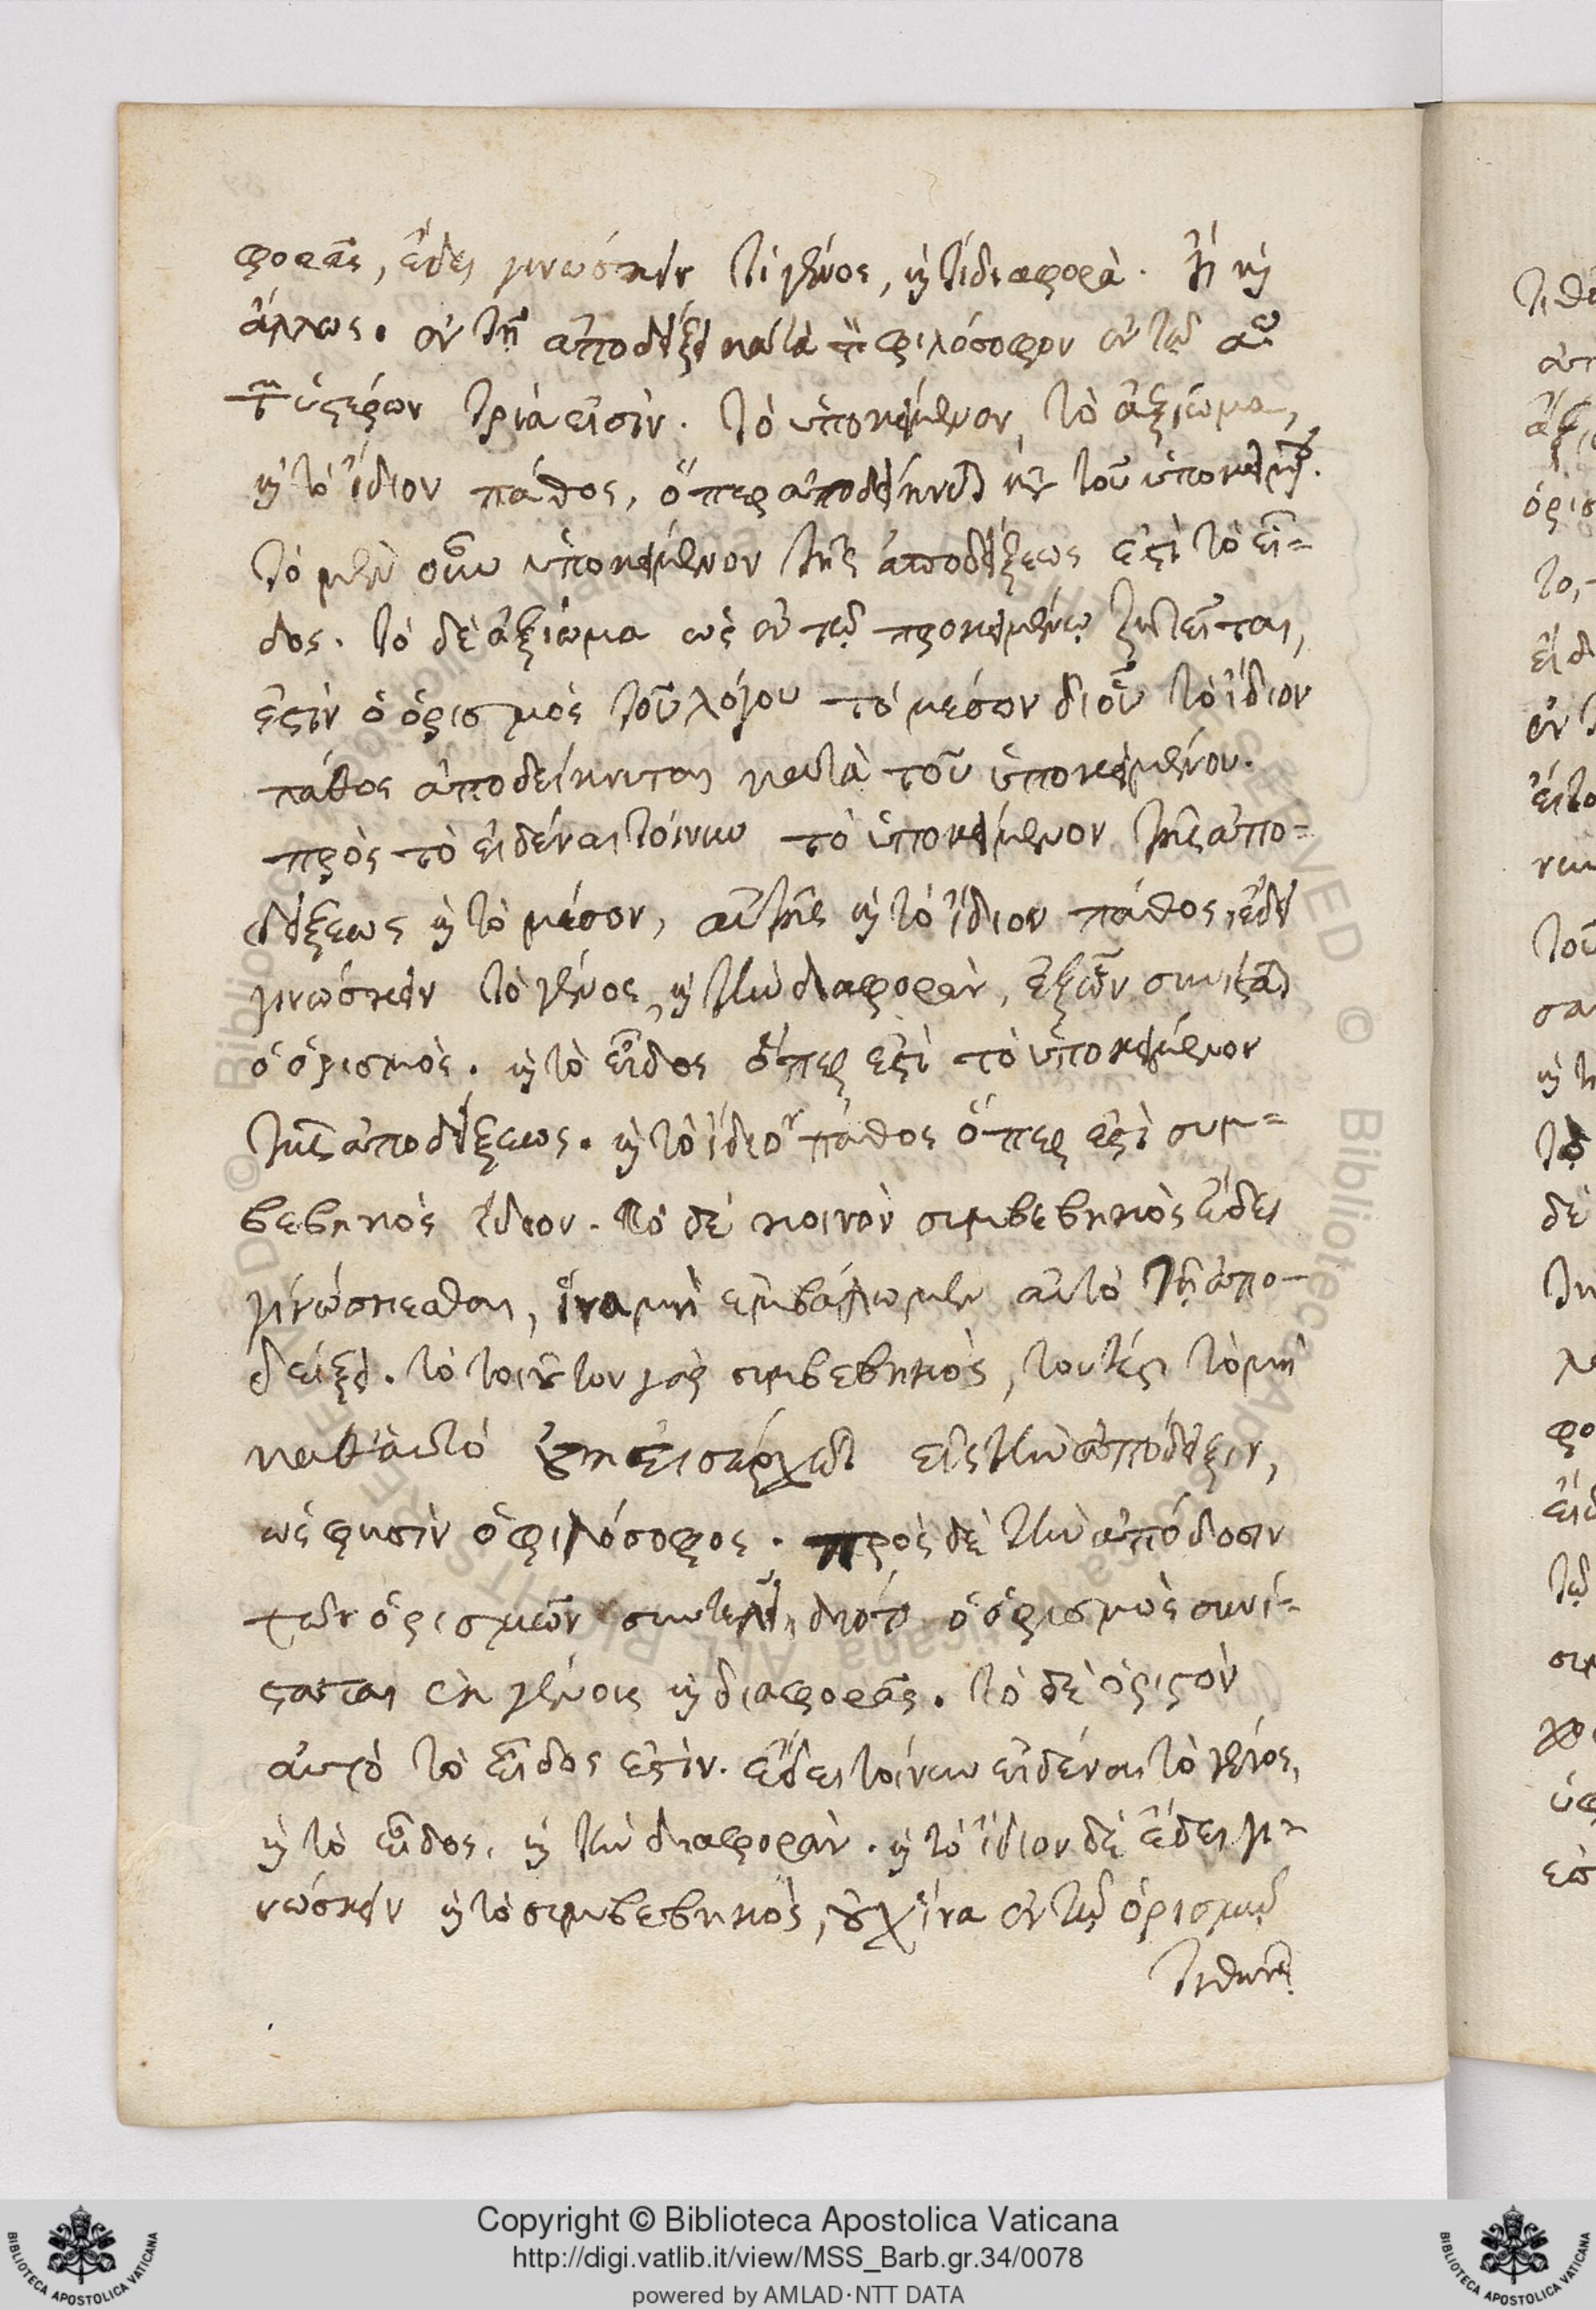 φορᾶς, ἔδει γινώσκειν τί γένος, καὶ τί διαφορά. ἢ καὶ
ἄλλως. ἐν τῇ ἀποδείξει κατὰ τὸν φιλόσοφον ἐν τῷ αῳ
τῶν ὑστέρων τρία εἰσίν. τὸ ὑποκείμενον, τὸ ἀξίωμα,
καὶ τὸ ἴδιον πάθος, ὅπερ ἀποδείκνυται τοῦ ὑποκειμένου.
τὸ μὲν οὖν ὑποκείμενον τῆς ἀποδείξεως ἐστὶ τὸ εἶ=
δος. τὸ δὲ ἀξίωμα ὡς ἐν τῷ προκειμένῳ ζητεῖται,
ἐστὶν ὁ ὁρισμὸς τοῦ λόγου τὸ μέσον δι οὗ τὸ ἴδιον
πάθος ἀποδείκνυται κατὰ τοῦ ὑποκειμένου.
πρὸς τὸ εἰδέναι τοίνυν τὸ ὑποκείμενον τῆς ἀπο=
δείξεως καὶ τὸ μέσον, αὐτῆς καὶ τὸ ἴδιον πάθος, ἔδει
γινώσκειν τὸ γένος, καὶ τὴν διαφοράν, ἐξ ὧν συνίσταται
ὁ ὁρισμός. καὶ τὸ εἶδος ὅπερ ἐστὶ τὸ ὑποκείμενον
τῆς ἀποδείξεως. καὶ τὸ ἴδιον πάθος ὅπερ ἐστὶ συμ=
βεβηκὸς ἴδιον. τὸ δὲ κοινὸν συμβεβηκὸς ἔδει
γινώσκεσθαι, ἵνα μὴ ἐμβάλωμεν αὐτὸ τῇ ἀπο-
δείξει. τὸ τοιοῦτον γὰρ συμβεβηκὸς, τουτέστι τὸ μὴ
καθ' αὑτὸ οὐκ εἰσέρχεται εἰς τὴν ἀπόδειξιν,
ὡς φησὶν ὁ φιλόσοφος. πρὸς δὲ τὴν ἀπόδοσιν
τῶν ὁρισμῶν συντελεῖ, διότι ὁ ὁρισμὸς συνί=
σταται ἐκ γένους καὶ διαφορᾶς. τὸ δὲ ὁριστὸν
αὐτὸ τὸ εἶδος ἐστίν. ἔδει τοίνυν εἰδέναι τὸ γένος,
καὶ τὸ εἶδος, καὶ τὴν διαφοράν. καὶ τὸ ἴδιον δὲ ἔδει γι=
νώσκειν καὶ τὸ συμβεβηκὸς, οὐχ ἵνα ἐν τῷ ὁρισμῷ
Copyright © Biblioteca Apostolica Vaticana
http://digi.vatlib.it/view/MSS_Barb.gr.34/0078
powered by AMLAD·NTT DATA